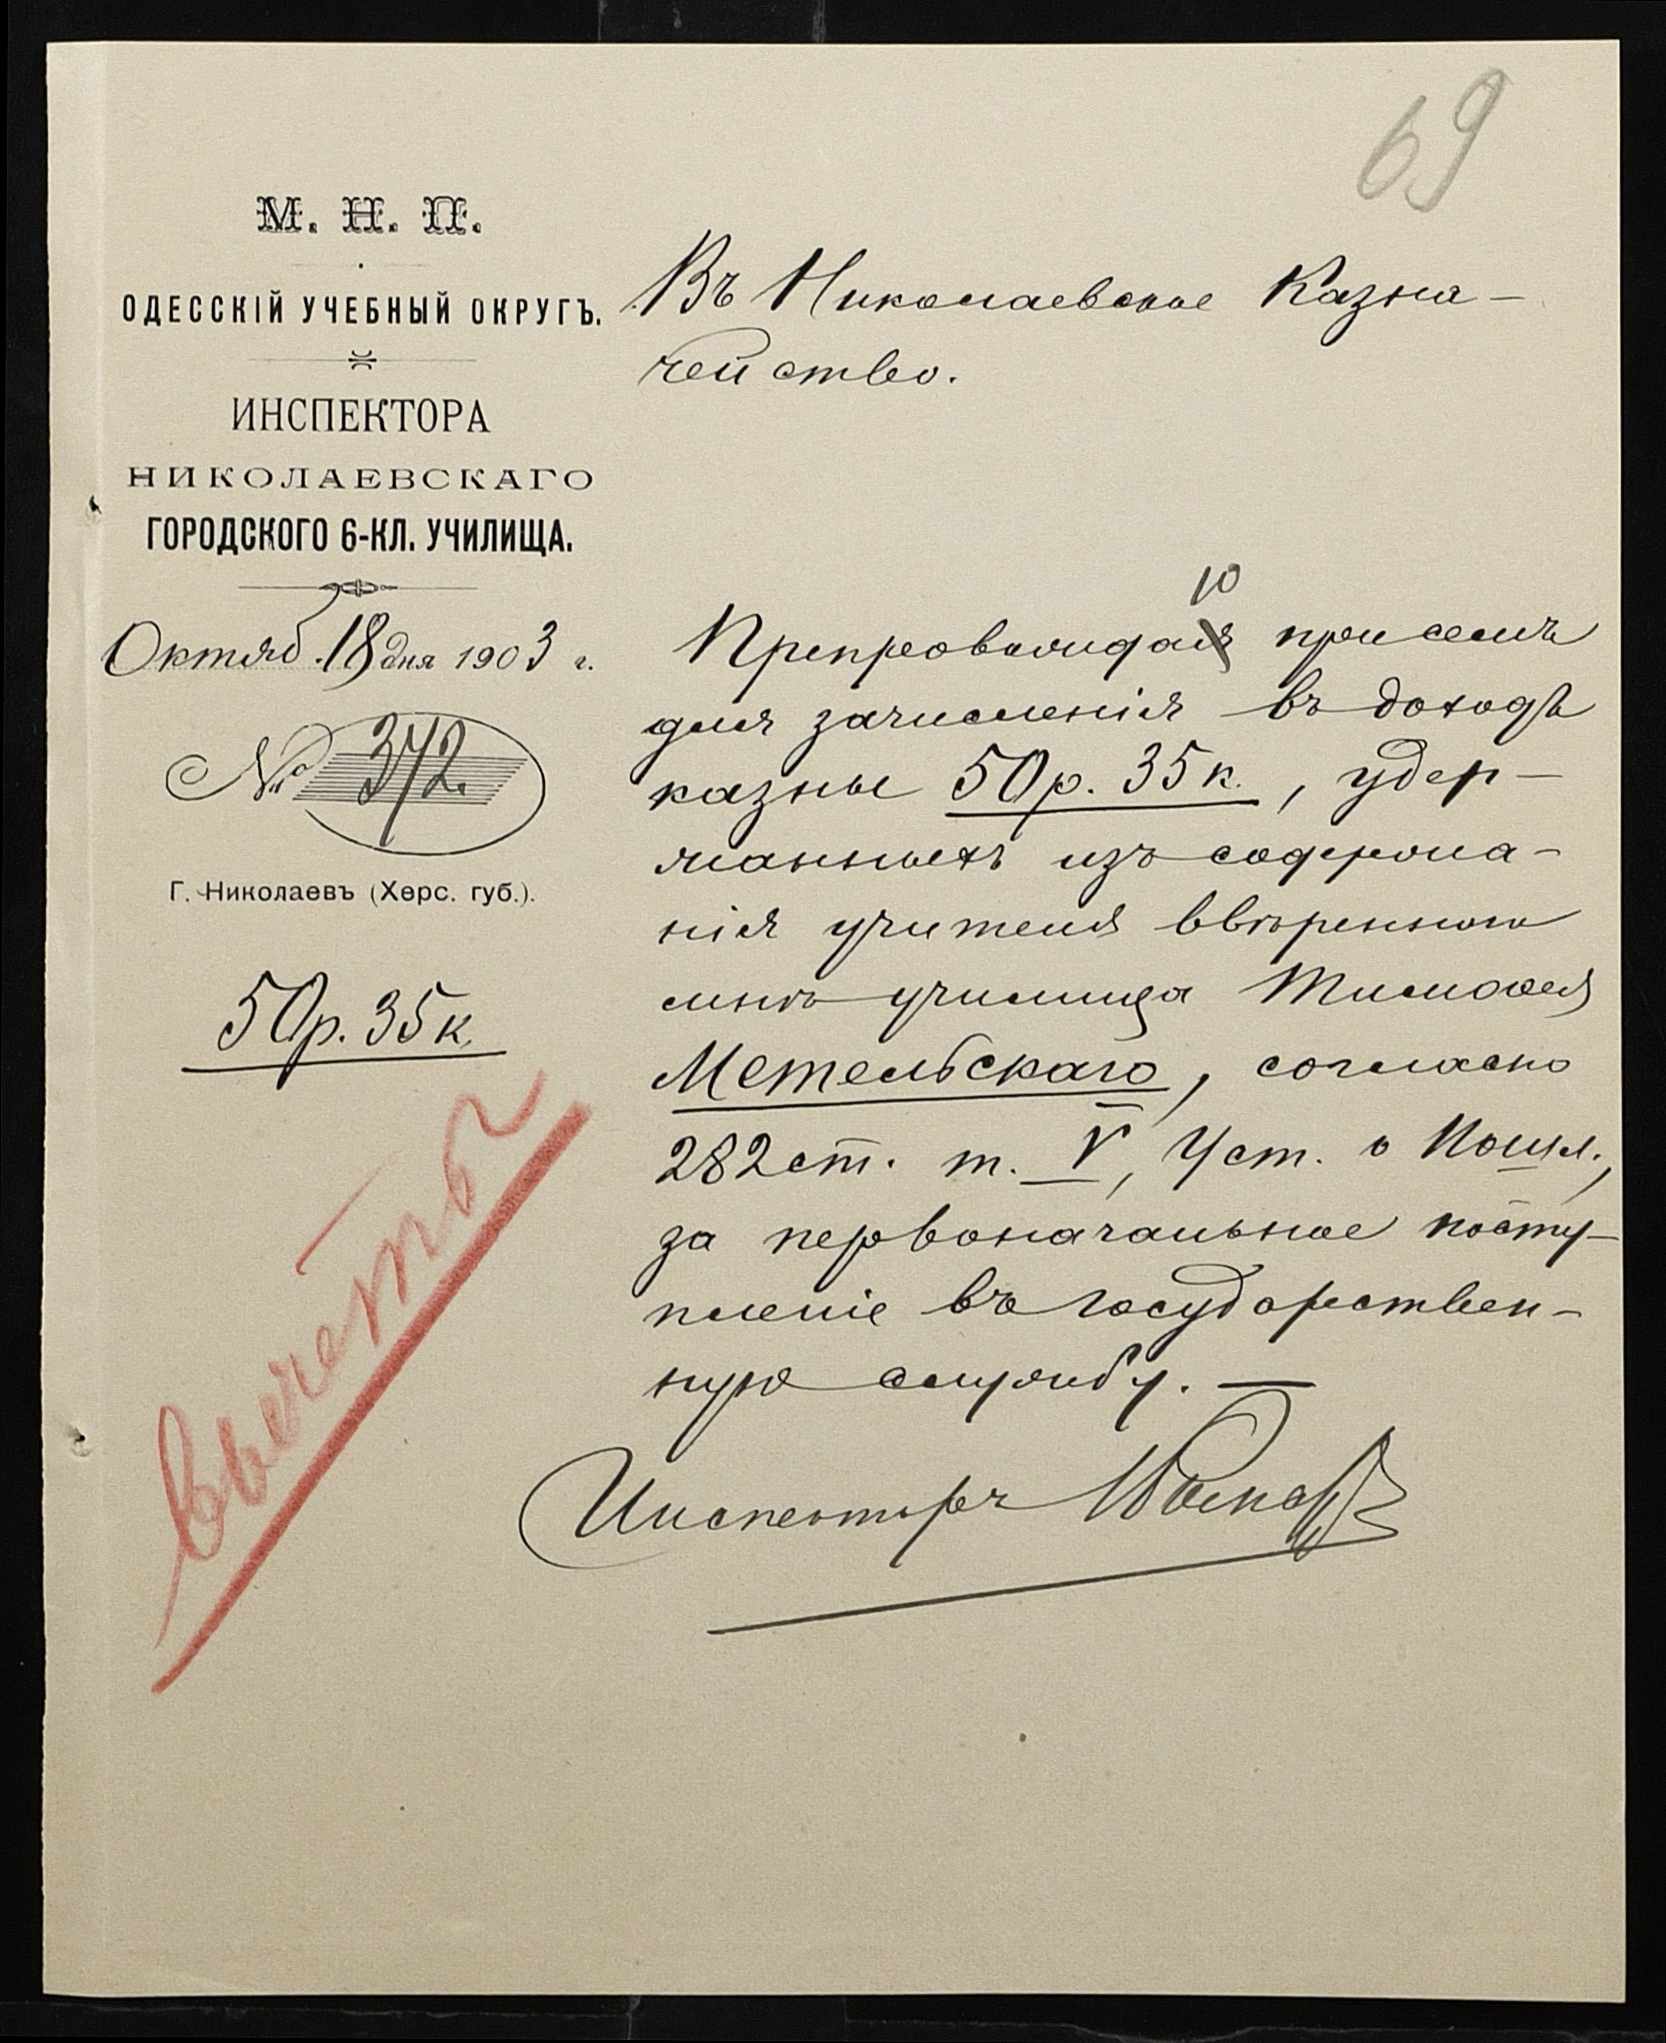 69
М. Н. П.
ОДЕССКІЙ УЧЕБНЫЙ ОКРУГЪ.
ИНСПЕКТОРА
НИКОЛАЕВСКАГО
ГОРОДСКОГО 6-КЛ. УЧИЛИЩА.
Октяб. 18 дня 1903 г.
№ 372.
Г. Николаевъ (Херс. губ.).
50р. 35к.
вычетъ
Въ Николаевское Казна-
чейство.
ю
Препровождая при семъ
для зачисленія въ доходъ
казны 50р. 35к., удер-
жанныхъ изъ содержа-
нія учителя ввѣреннаго
мнѣ училища Тимоѳея
Метельскаго, согласно
282 ст. т. V, Уст. о Пошл.,
за первоначальное посту-
пленіе въ государствен-
ную службу. —
Инспекторъ